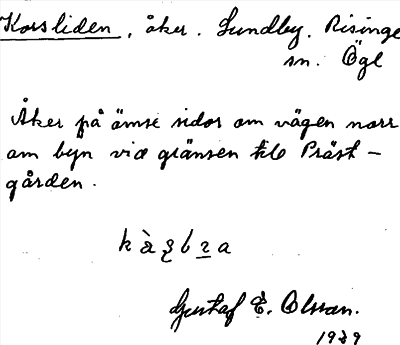 Korsliden, åker. Lundby. Risinge
sn. Ögl
Åker på ömse sidor om vägen norr
om byn vid gränsen till Präst-
gården.
Gustaf E. Olsson.
1939